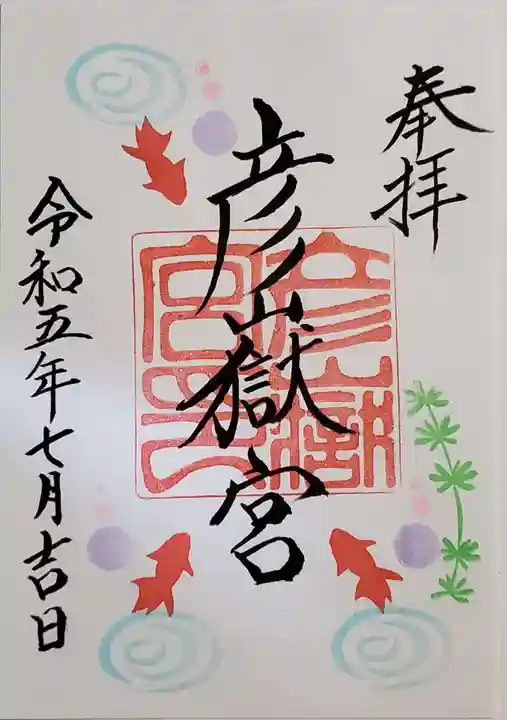 奉拝
彦嶽宮
令和五年七月吉日
彦嶽宮印